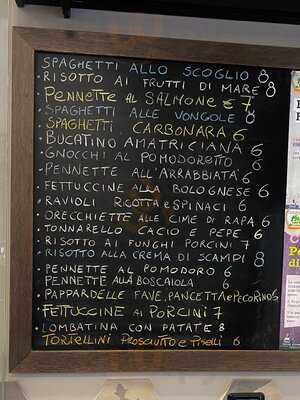 SPAGHETTI ALLO SCOGLIO 8
• RISOTTO AI FRUTTI DI MARE 8
• PENNETTE AL SALMONE € 7
• SPAGHETTI ALLE VONGOLE 8
• SPAGHETTI CARBONARA 6
BUCATINO AMATRICIANA 6
• GNOCCHI AL POMODORETTO 6
• PENNETTE ALL'ARRABBIATA 6
• FETTUCCINE ALLA BOLOGNESE 6
• RAVIOLI RICOTTA e SPINACI 6
• ORECCHIETTE ALLE CIME DI RAPA 6
• TONNARELLO CACIO E PEPE 6
• RISOTTO AI FUNGHI PORCINI 7
• RISOTTO ALLA CREMA DI SCAMPI 8
• PENNETTE AL POMODORO 6
PENNETTE ALLA BOSCAIOLA 6
• PAPPARDELLE FAVE, PANCETTA e PECORINO 6
• FETTUCCINE AI PORCINI 7
• LOMBATINA CON PATATE 8
TORTELLINI PROSCIUTTO e PISELLI 6